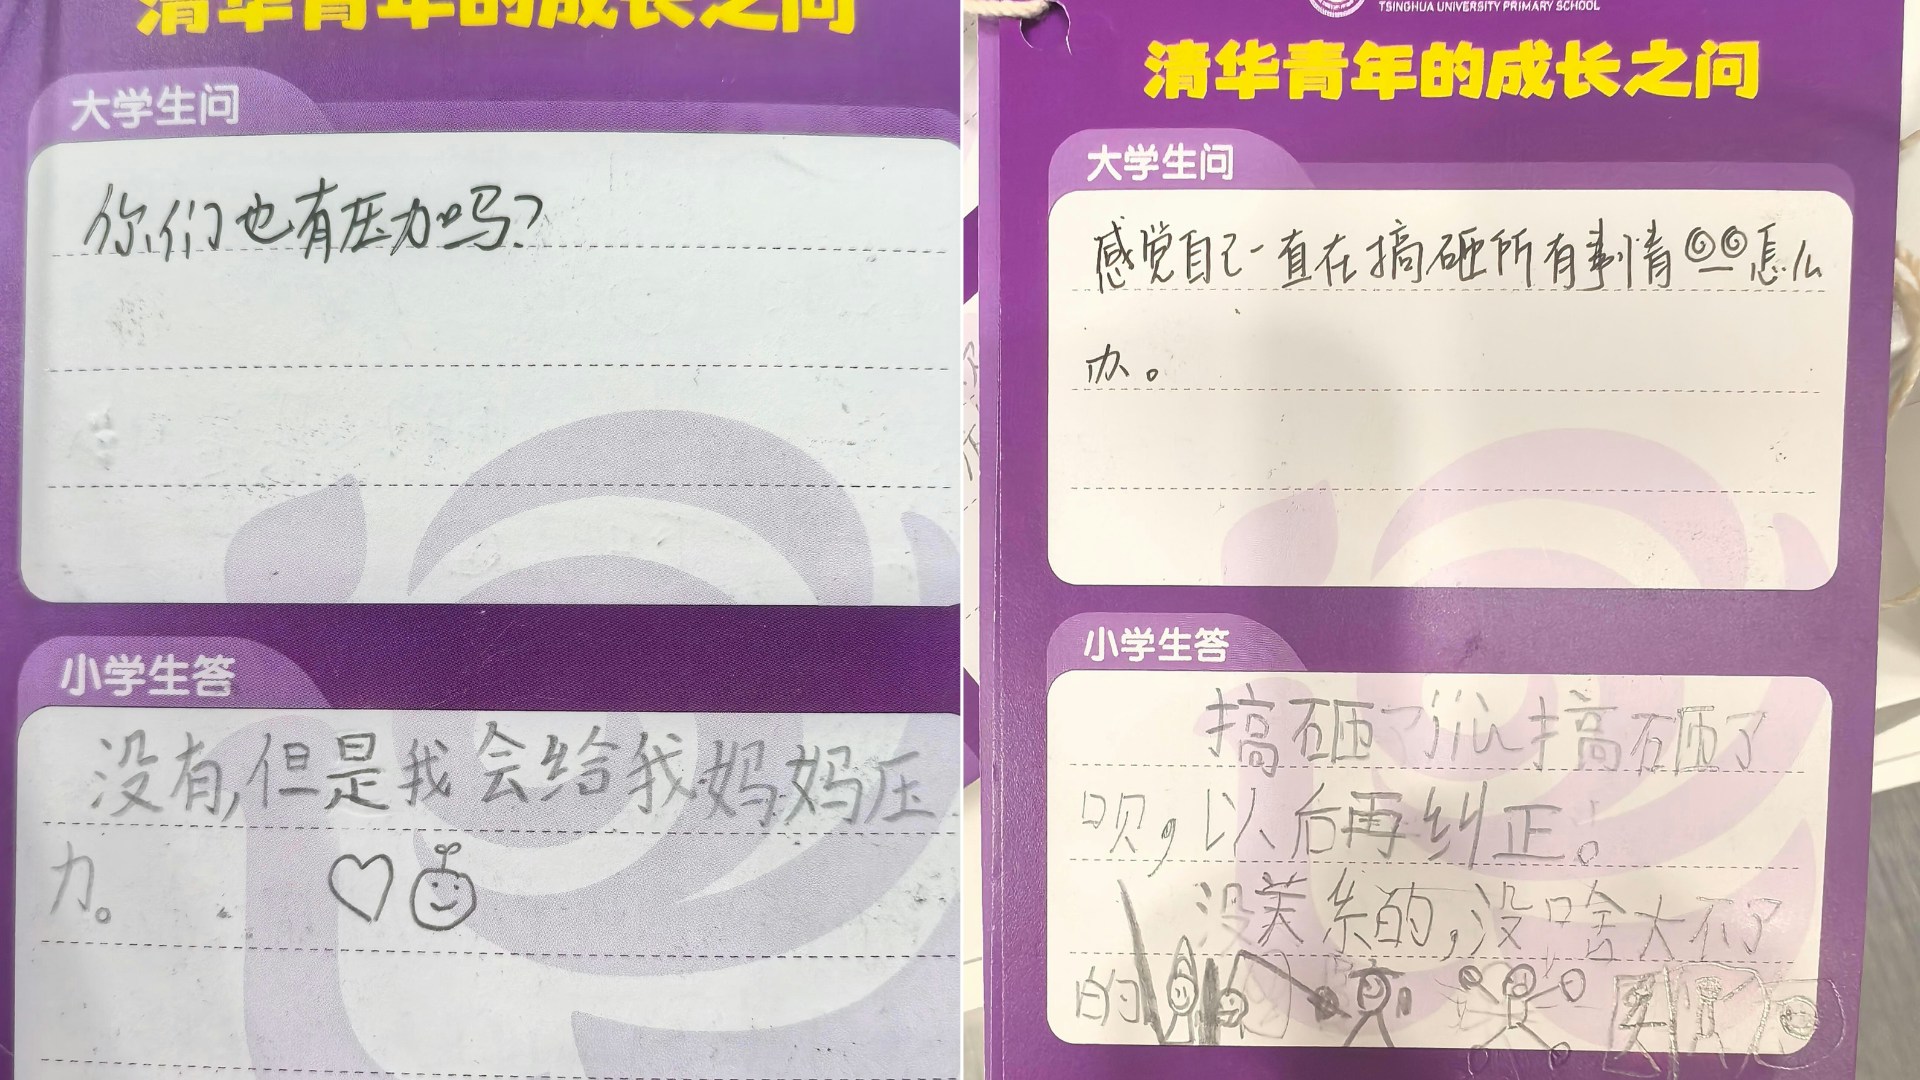 清华青年的成长之问
大学生问
你们也有压力吗?
小学生答
没有,但是我会给我妈妈压
力。
TSINGHUA UNIVERSITY PRIMARY SCHOOL
清华青年的成长之问
大学生问
感觉自己一直在搞砸所有事情怎么
办。
小学生答
搞砸了就搞砸了
呗,以后再纠正。
没关系的,没啥大不了
的